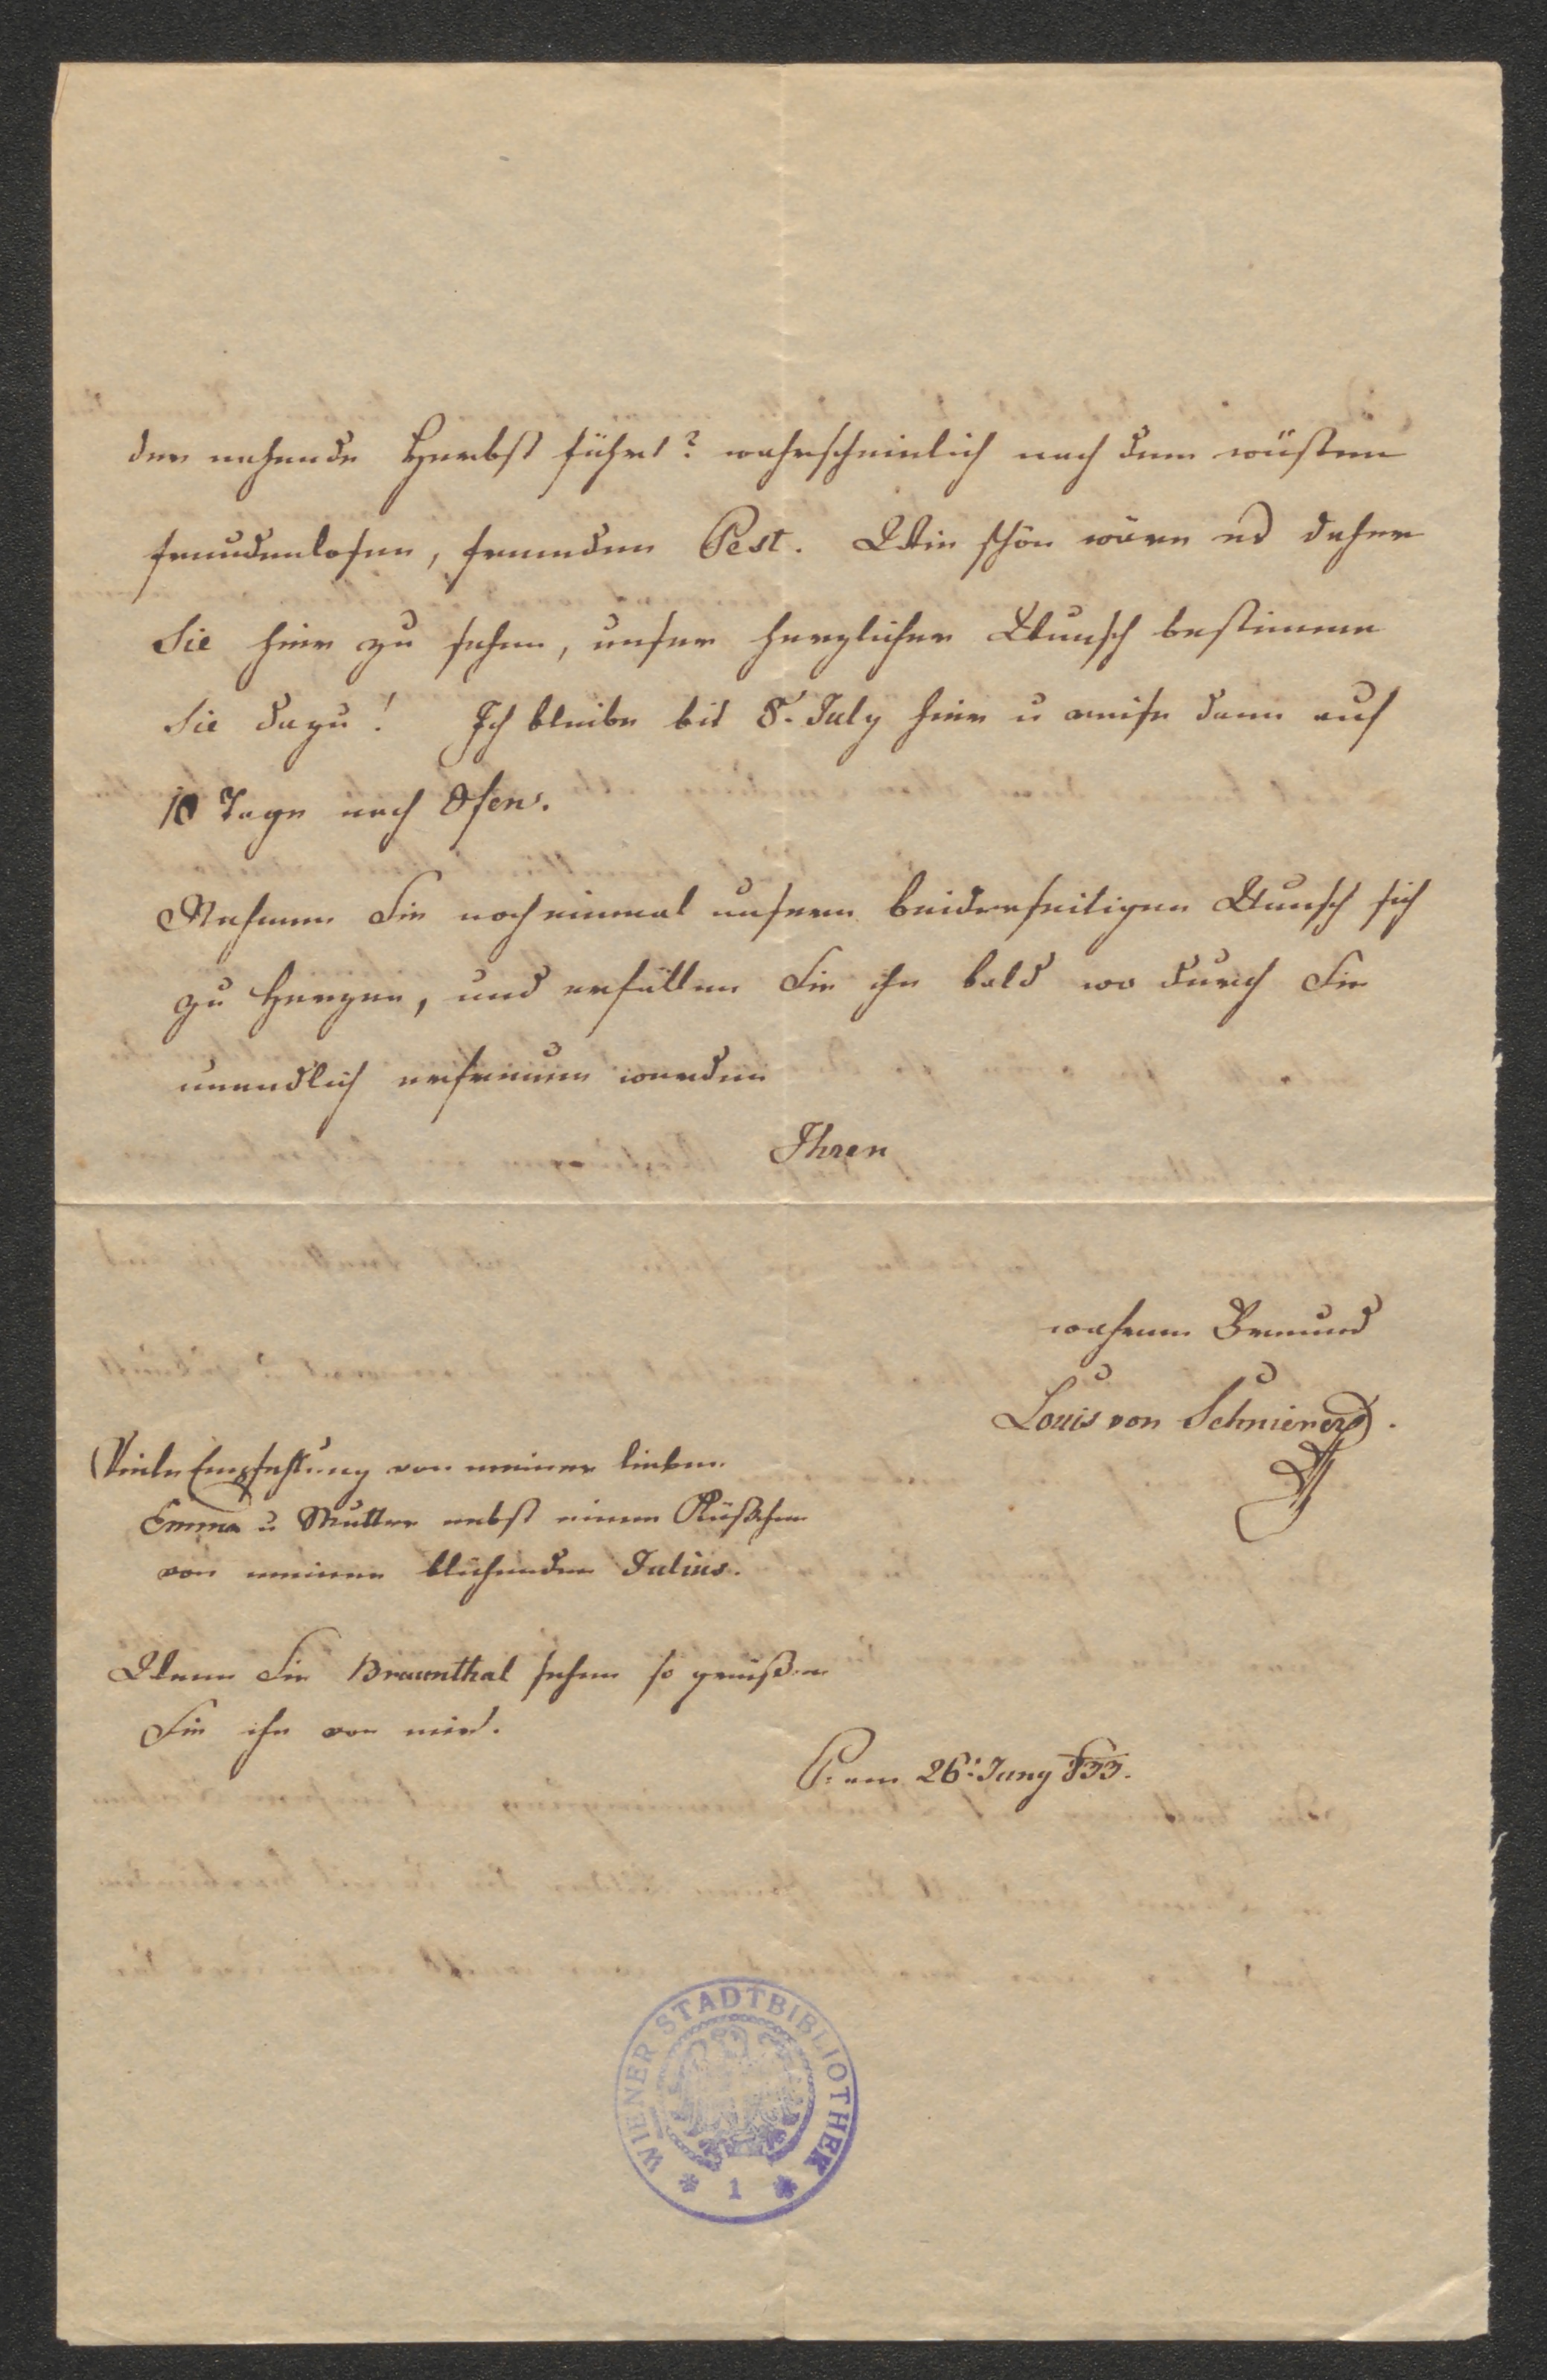 der nahende Herbst führt? wahrscheinlich nach dem wüsten
freudenlosen, fremden Pest. Wie schön wäre es daher
Sie hier zu sehen, unser herzlicher Wunsch bestimme
Sie dazu! Ich bleibe bis 8. July hier u reise dann auf
10 Tage nach Ofen.
Nehmen Sie noch einmal unsern beiderseitigen Wunsch sich
zu Herzen, und erfüllen Sie ihn bald wo durch Sie
unendlich erfreuen werden
Ihren
wahren Freund
Louis von Schmierer.
Viele Empfehlung von meiner lieben
Emma u Mutter nebst einem Küßchen
von meinem blühenden Julius.
Wenn Sie Braunthal sehen so grüßen
Sie ihn von mir.
P. am 26: Juny 833.
WIENER STADTBIBLIOTHEK
* 1 *